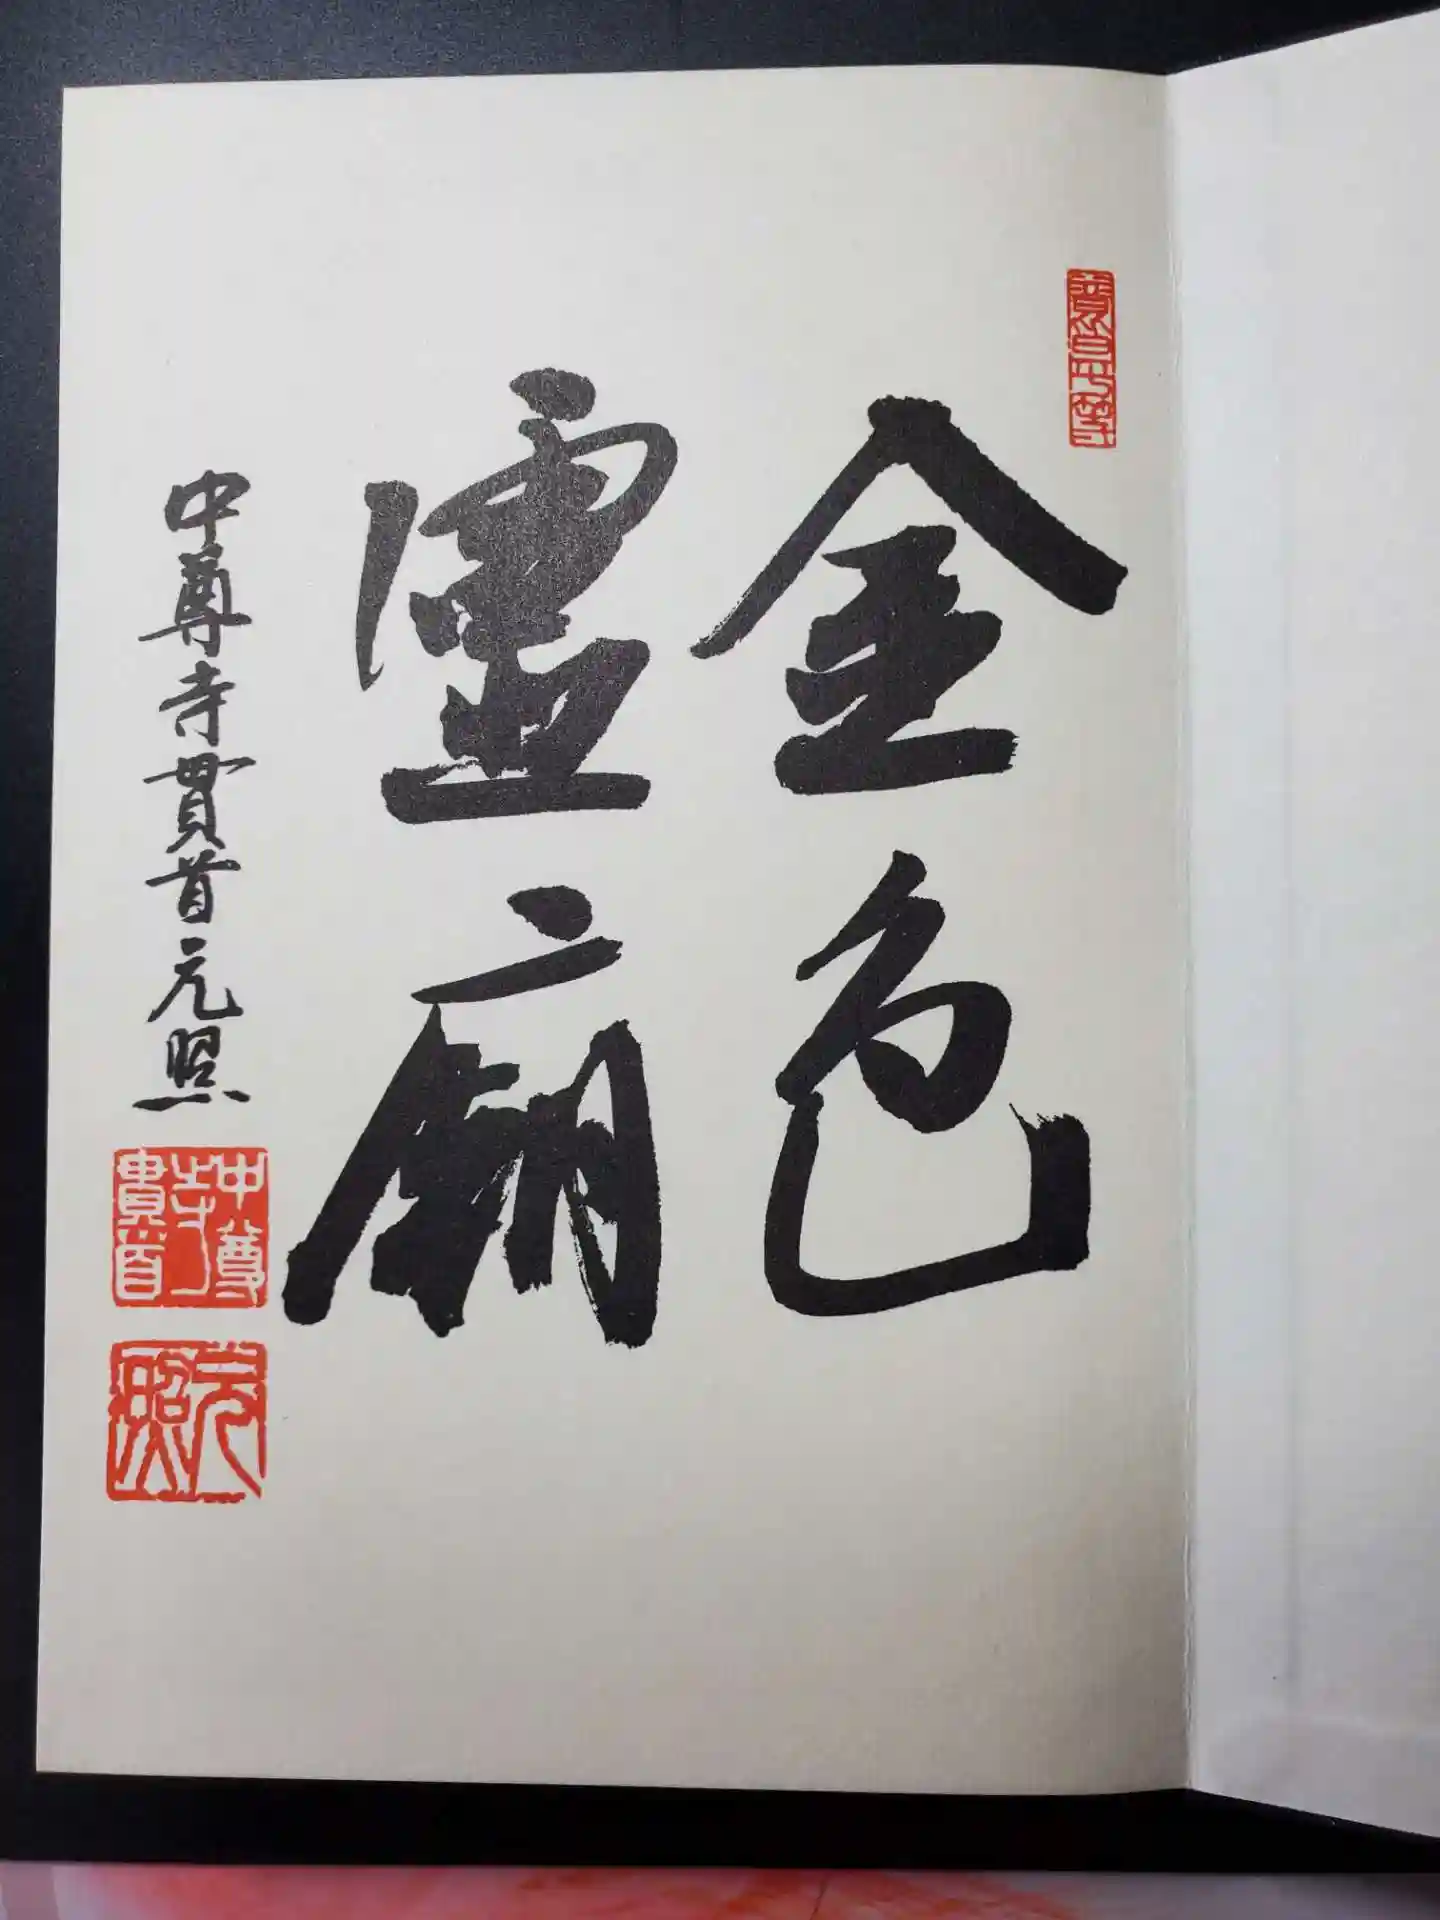 金色
霊廟
中尊寺貫首元照
中尊
寺
貫首
元照